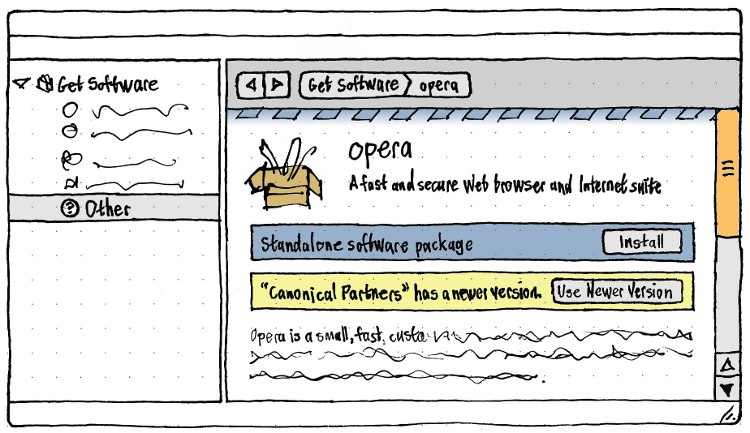 Get Software
Other
Get Software
opera
opera
A fast and secure Web browser and Internet suite
Standalone software package
Install
"Canonical Partners" has a newer version.
Use Newer Version
Opera is a small, fast, custo